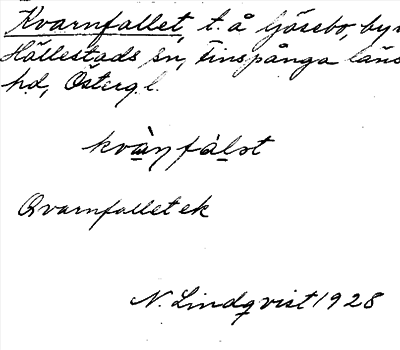 Kvarnfallet, t. å Gösebo, byn
Hällestads sn, Finspånga läns
hd, Östergl.
kvàṇfàlət
Qvarnfallet ek
N. Lindqvist 1928